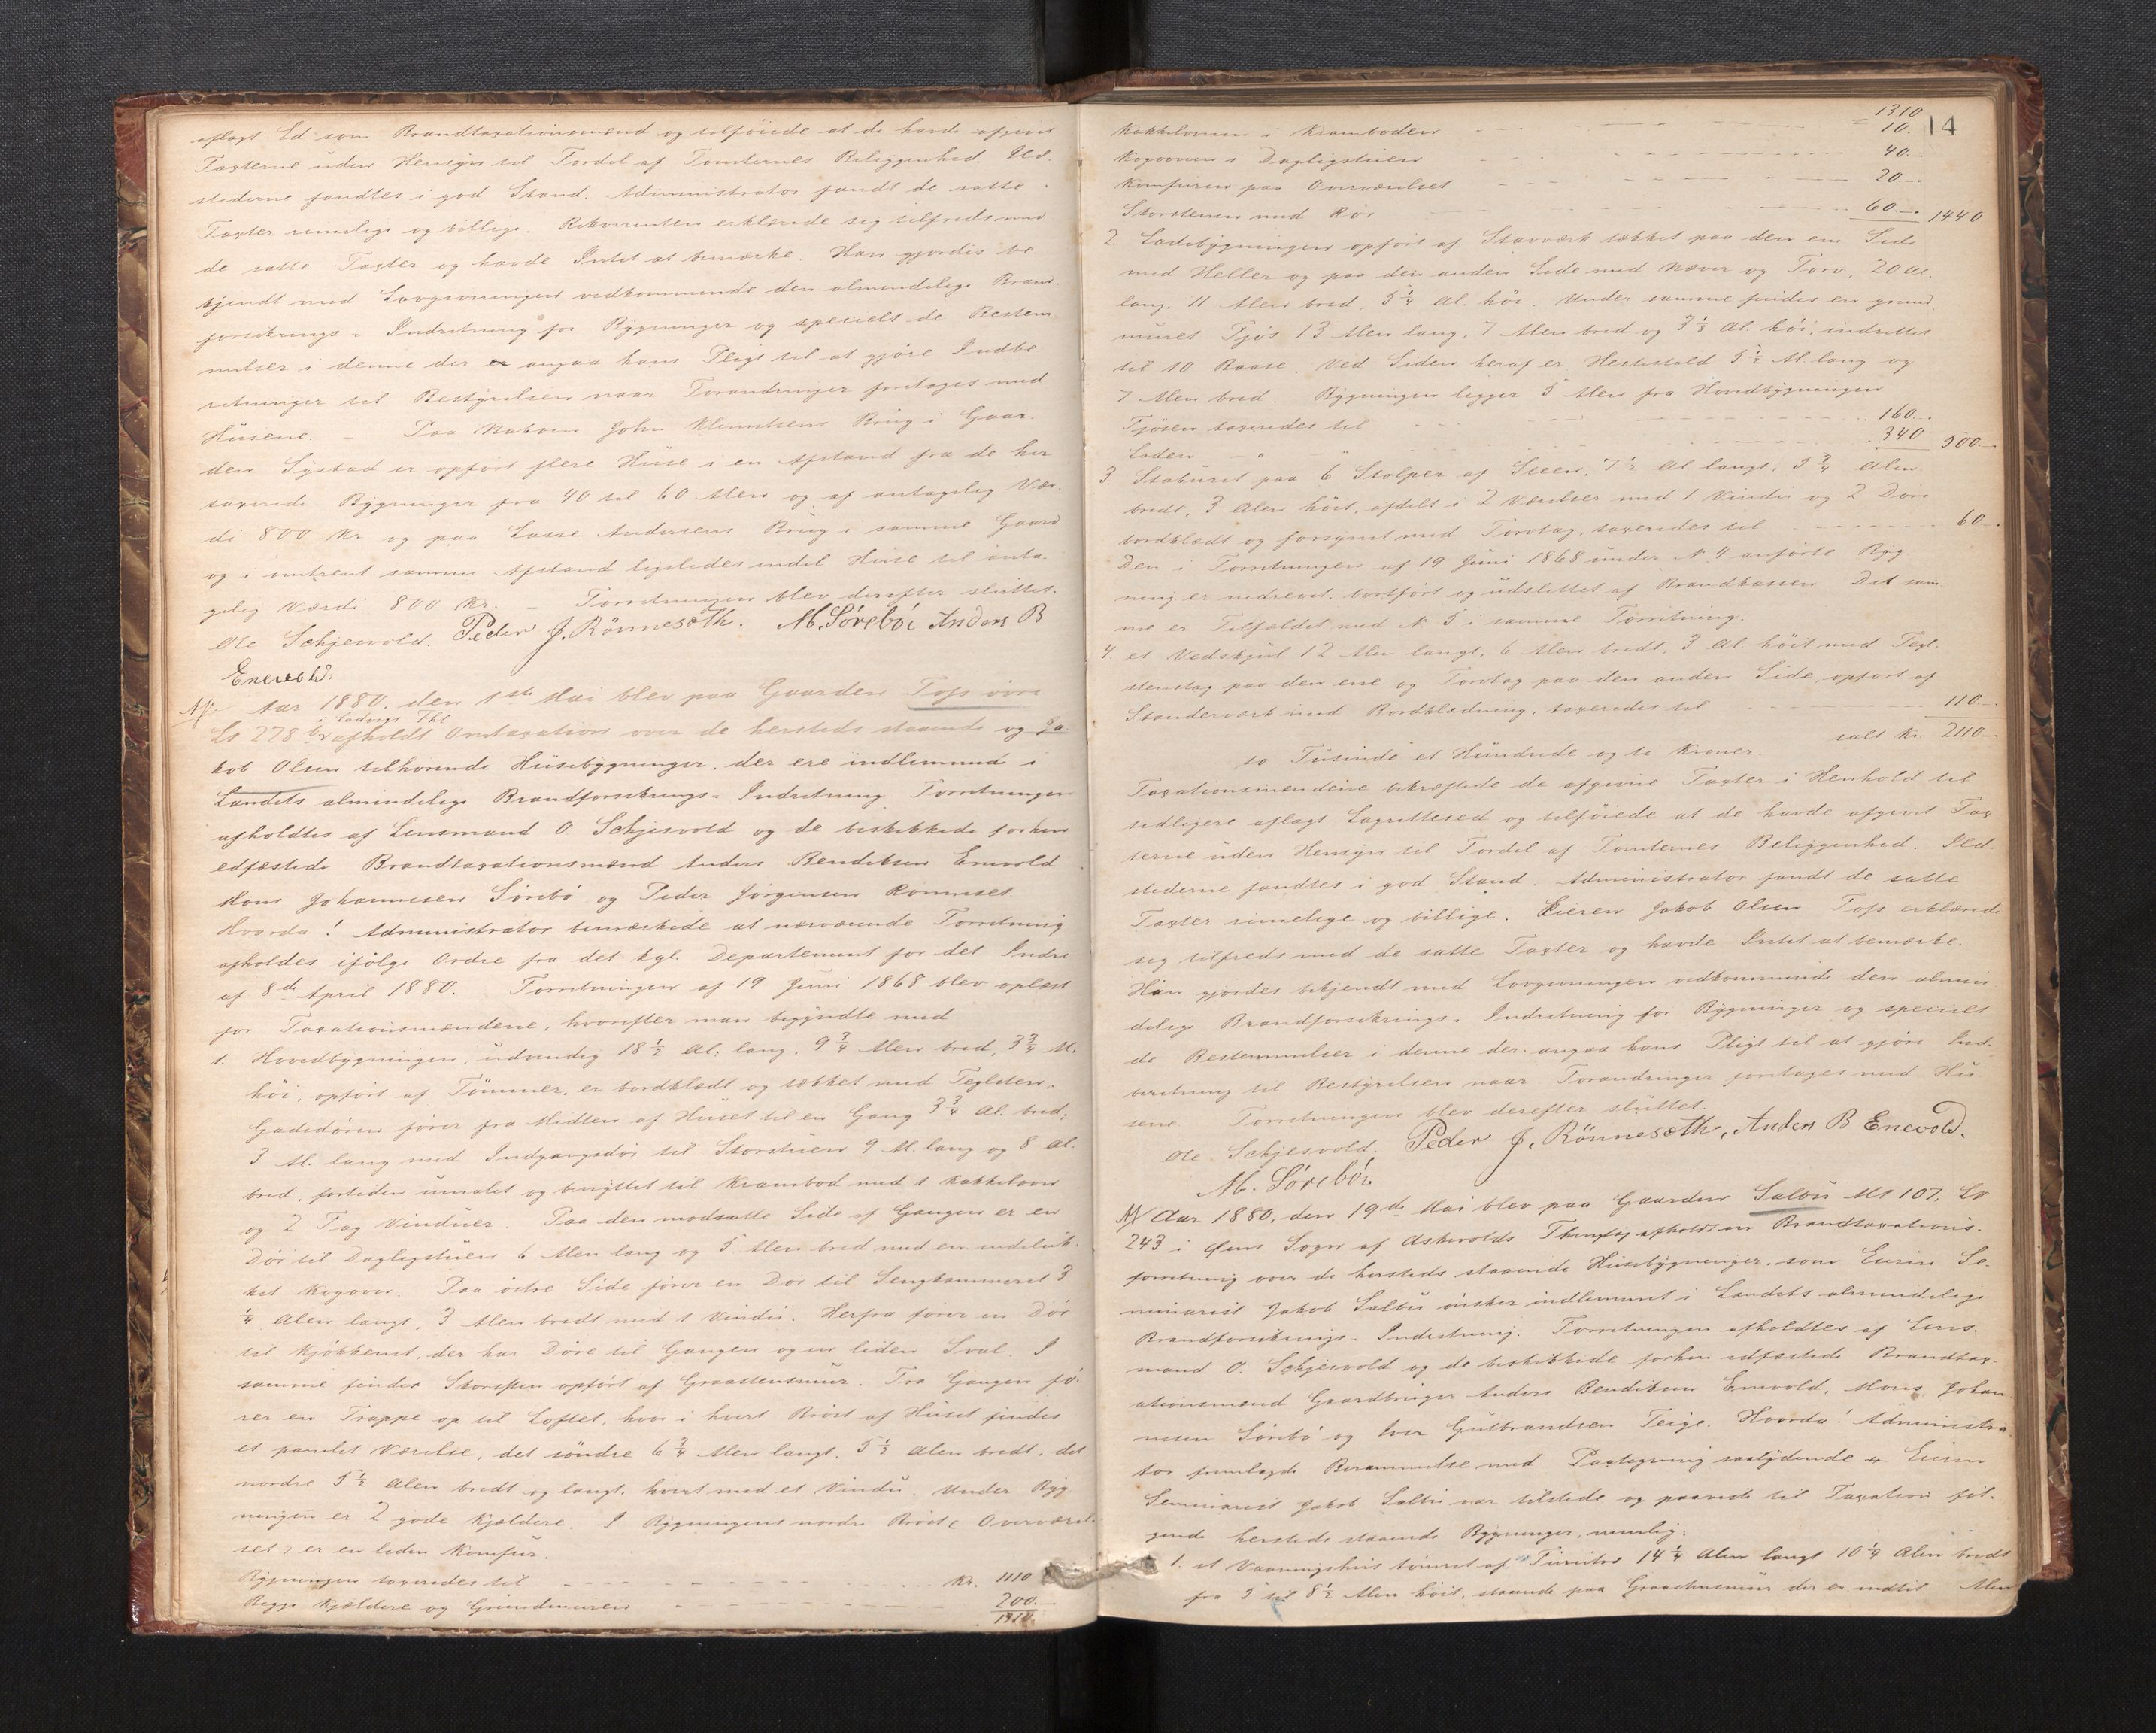 aflagt Ed som Brandtaxationsmænd og tilføiede at de havde afgivet
Taxterne uden Hensyn til Fordel af Tomternes Beliggenhed. Ild-
stederne fandtes i god Stand. Administrator fandt de satte
Taxter rimelige og billige. Rekvirenten erklærede sig tilfreds med
de satte Taxter og havde Intet at bemærke. Han gjordes be
kjendt med Lovgivningen vedkommende den almindelige Brand-
forsikrings-Indretning for Bygninger og specielt de Bestem
melser i denne der angaa hans Pligt til at gjøre Indbe
retninger til Bestyrelsen naar Forandringer foretages med
Husene. – Paa Naboen John Klemetsens Brug i Gaar-
den Systad er opført flere Huse i en Afstand fra de her
taxerede Bygninger fra 40 til 60 Alen og af antagelig Vær-
di 800 Kr og paa Lasse Andersens Brug i samme Gaard
og i omtrent samme Afstand ligeledes endel Huse til anta-
gelig Værdi 800 Kr. – Forretningen blev derefter sluttet.
Ole Schjesvold. Peder J. Rönnesæth. M. Sørebøe Anders B
Enevold.
Aar 1880, den 1ste Mai blev paa Gaarden Tofs øvre
i Ladvigs Thl
Lb 228 b, afholdt Omtaxation over de hersteds staaende og Ja-
kob Olsen tilhørende Husebygninger, der ere indlemmede i
Landets almindelige Brandforsikrings-Indretning. Forretningen
afholdtes af Lensmand O. Schjesvold og de beskikkede forhen
edfæstede Brandtaxationsmænd Anders Bendiksen Enevold
Mons Johannesen Sørebø og Peder Jørgensen Rønneset
Hvorda! Administrator bemærkede at nærværende Forretning
afholdes ifølge Ordre fra det kgl. Departement for det Indre
af 8de April 1880. Forretningen af 19 Juni 1868 blev oplæst
for Taxationsmændene, hvorefter man begyndte med
1. Hovedbygningen, udvendig 18 1/2 Al. lang, 9 3/4 Alen bred, 3 3/4 Al.
høi, opført af Tømmer, er bordklædt og tækket med Teglsten.
Gadedøren fører fra Midten af Huset til en Gang 3 3/4 Al. bred,
3 Al. lang med Indgangsdør til Storstuen 9 Al. lang og 8 Al.
bred, fortiden umalet og benyttet til Krambod med 1 Kakkelovn
og 2 Fag Vinduer. Paa den modsatte Side af Gangen er en
Dør til Dagligstuen 6 Alen lang og 5 Alen bred med en indeluk-
ket Kogovn. Paa østre Side fører en Dør til Sengkammeret 3
1/4 Alen langt, 3 Alen bredt med 1 Vindu. Herfra fører en Dør
til Kjøkkenet, der har Døre til Gangen og en liden Sval. I
samme findes Skorsten opført af Graastensmuur. Fra Gangen fø-
rer en Trappe op til Loftet, hvor i hvert Brøst af Huset findes
et panelet Værelse, det søndre 6 3/4 Alen langt, 5 1/2 Alen bredt, det
nordre 5 1/2 Alen bredt og langt, hvert med et Vindu. Under Byg
ningen er 2 gode Kjeldere. I Bygningens nordre Brøst (Overværel-
set) er en liden Komfur.
Bygningen taxeredes til Kr. 1110
Begge Kjeldere og Grundmuren 200.–
1310.
14
1310
Kakkelovnen i Kramboden 10.
Kogovnen i Dagligstuen 40.–
Komfuren paa Overværelset 20.–
Skorstenen med Rør 60.– 1440.
2. Ladebygningen opført af Stavværk tækket paa den ene Side
med Heller og paa den anden Side med Næver og Torv, 20 Al.
lang, 11 Alen bred, 5 1/4 Al. høi. Under samme findes en grund
muret Fjøs 13 Alen lang, 7 Alen bred og 3 1/2 Al. høi, indrettet
til 10 Baase. Ved Siden heraf er Hestestald 5 1/2 Al. lang og
7 Alen bred. Bygningen ligger 5 Alen fra Hovedbygningen
Fjøsen taxeredes til 160.–
Laden – " 340 500.–
3. Staburet paa 6 Stolper af Steen, 7 1/2 Al. langt, 5 3/4 Alen
bredt, 3 Alen høit, afdelt i 2 Værelser med 1 Vindu og 2 Døre
bordklædt og forsynet med Torvtag, taxeredes til 60.–
Den i Forretningen af 19 Juni 1868 under N 4 anførte Byg
ning er nedrevet, bortført og udslettet af Brandkassen. Det sam
me er Tilfældet med N 5 i samme Forretning.
4. et Vedskjul 12 Alen langt, 6 Alen bredt, 3 Al. høit med Tegl-
stenstag paa den ene og Torvtag paa den anden Side, opført af
Standerværk med Bordklædning, taxeredes til 110.–
ialt Kr. 2110.–
to Tusinde et Hundrede og ti Kroner.
Taxationsmændene bekræftede de afgivne Taxter i Henhold til
tidligere aflagt Lagrettesed og tilføiede at de havde afgivet Tax
terne uden Hensyn til Fordel af Tomternes Beliggenhed. Ild-
stederne fandtes i god Stand. Administrator fandt de satte
Taxter rimelige og billige. Eieren Jakob Olsen Tofs erklærede
sig tilfreds med de satte Taxter og havde Intet at bemærke.
Han gjordes bekjendt med Lovgivningen vedkommende den almin
delige Brandforsikrings-Indretning for Bygninger og specielt
de Bestemmelser i denne der angaa hans Pligt til at gjøre Ind-
beretning til Bestyrelsen naar Forandringer foretages med Hu
sene. Forretningen blev derefter sluttet.
Ole Schjesvold. Peder J. Rönnesæth, Anders B Enevold.
M. Sørebøe
Aar 1880, den 19de Mai blev paa Gaarden Salbu Mt 107, Lb
243 i Øens Sogn af Askevolds Thinglag afholdt en Brandtaxations-
forretning over de hersteds staaende Husebygninger, som Eieren Se-
minarist Jakob Salbu ønsker indlemmet i Landets almindelige
Brandforsikrings-Indretning. Forretningen afholdtes af Lens-
mand O. Schjesvold og de beskikkede forhen edfæstede Brandtax-
ationsmænd Gaardbruger Anders Bendiksen Enevold, Mons Johan
nesen Sørebø og Iver Gulbrandsen Teige. Hvorda! Administra-
tor fremlagde Berammelse med Paategning saalydende Eieren
Seminarist Jakob Salbu var tilstede og paaviste til Taxation føl-
gende hersteds staaende Bygninger, nemlig:
1. et Vaaningshus tømret af Furutø 14 1/4 Alen langt 10 1/4 Alen bredt
fra 5 til 8 1/2 Alen høit, staaende paa Graastensmuur der er indtil Alen